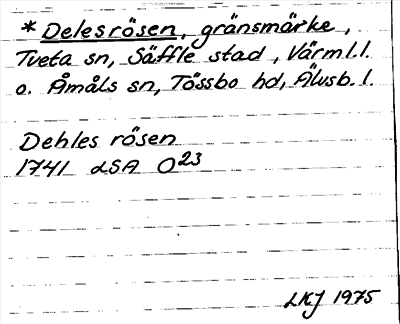 * Delesrösen, gränsmärke,
Tveta sn, Säffle stad, Värml. l.
o. Åmåls sn, Tössbo hd, Älvsb. l.
Dehles rösen
1741 LSA O23
LKJ 1975